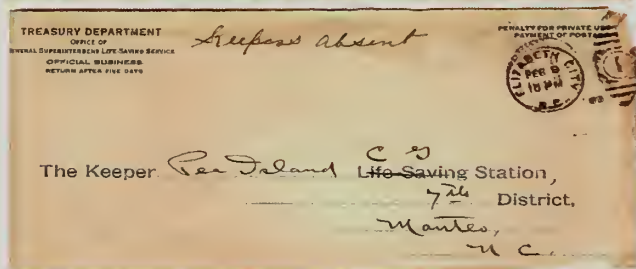 TREASURY DEPARTMENT
OFFICE OF
GENERAL SUPERINTENDENT LIFE-SAVING SERVICE
OFFICIAL BUSINESS
RETURN AFTER FIVE DAYS
Keepers absent
PENALTY FOR PRIVATE USE
PAYMENT OF POSTA
ELIZABETH CITY
FEB 9
PM
N.C.
1
The Keeper Pea Island C G Life-Saving Station,
7th District,
Manteo,
N C.